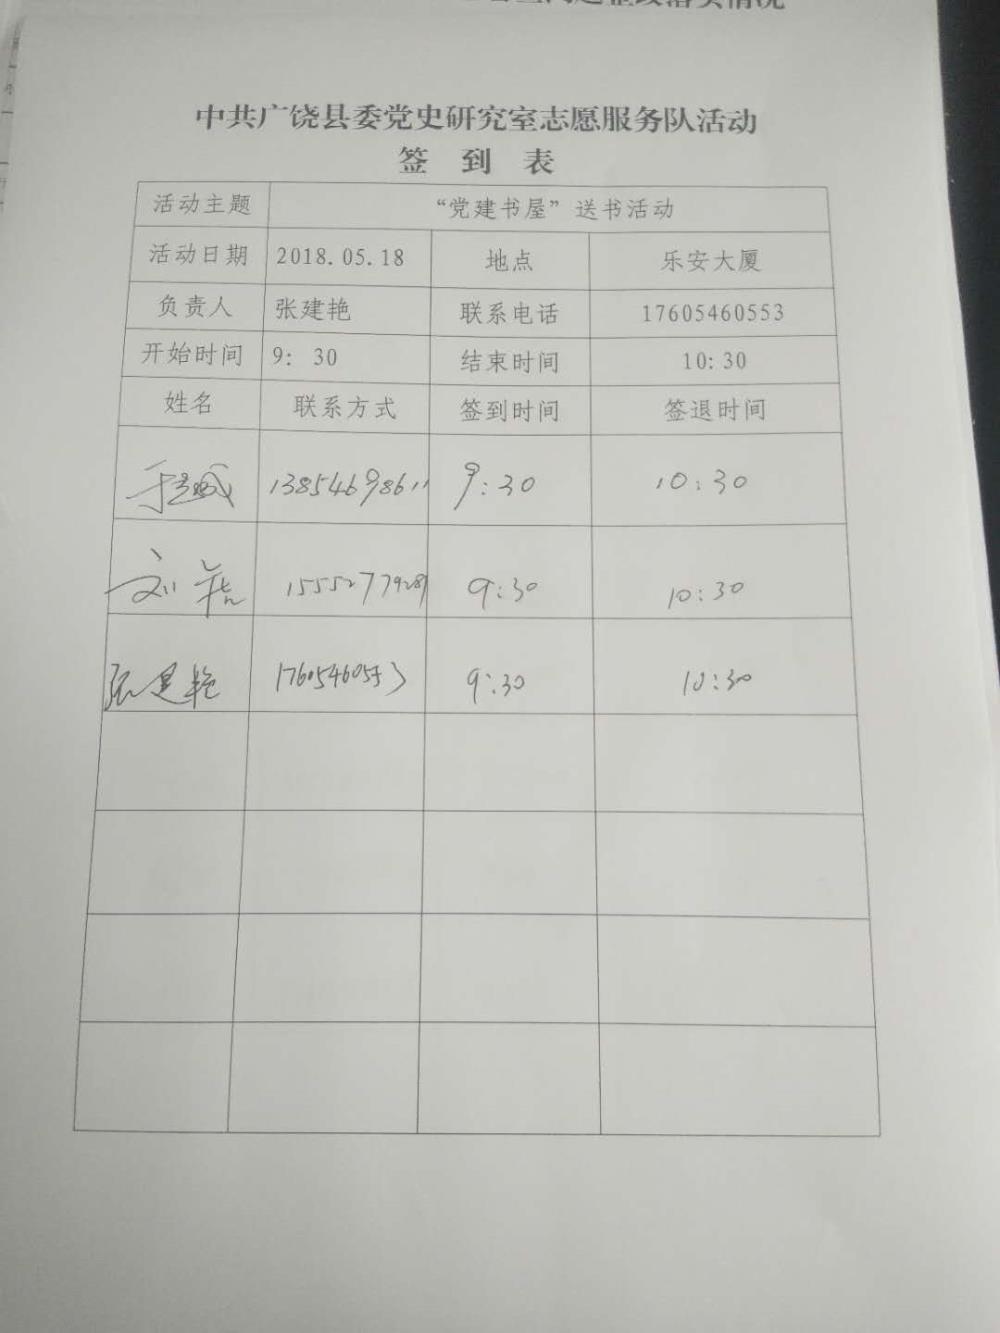 中共广饶县委党史研究室志愿服务队活动
签 到 表
活动主题 “党建书屋”送书活动
活动日期 2018.05.18 地点 乐安大厦
负责人 张建艳 联系电话 17605460553
开始时间 9: 30 结束时间 10:30
姓名 联系方式 签到时间 签退时间
13854698611 9:30 10:30
刘 9:30 10:30
张建艳 17605460553 9:30 10:30